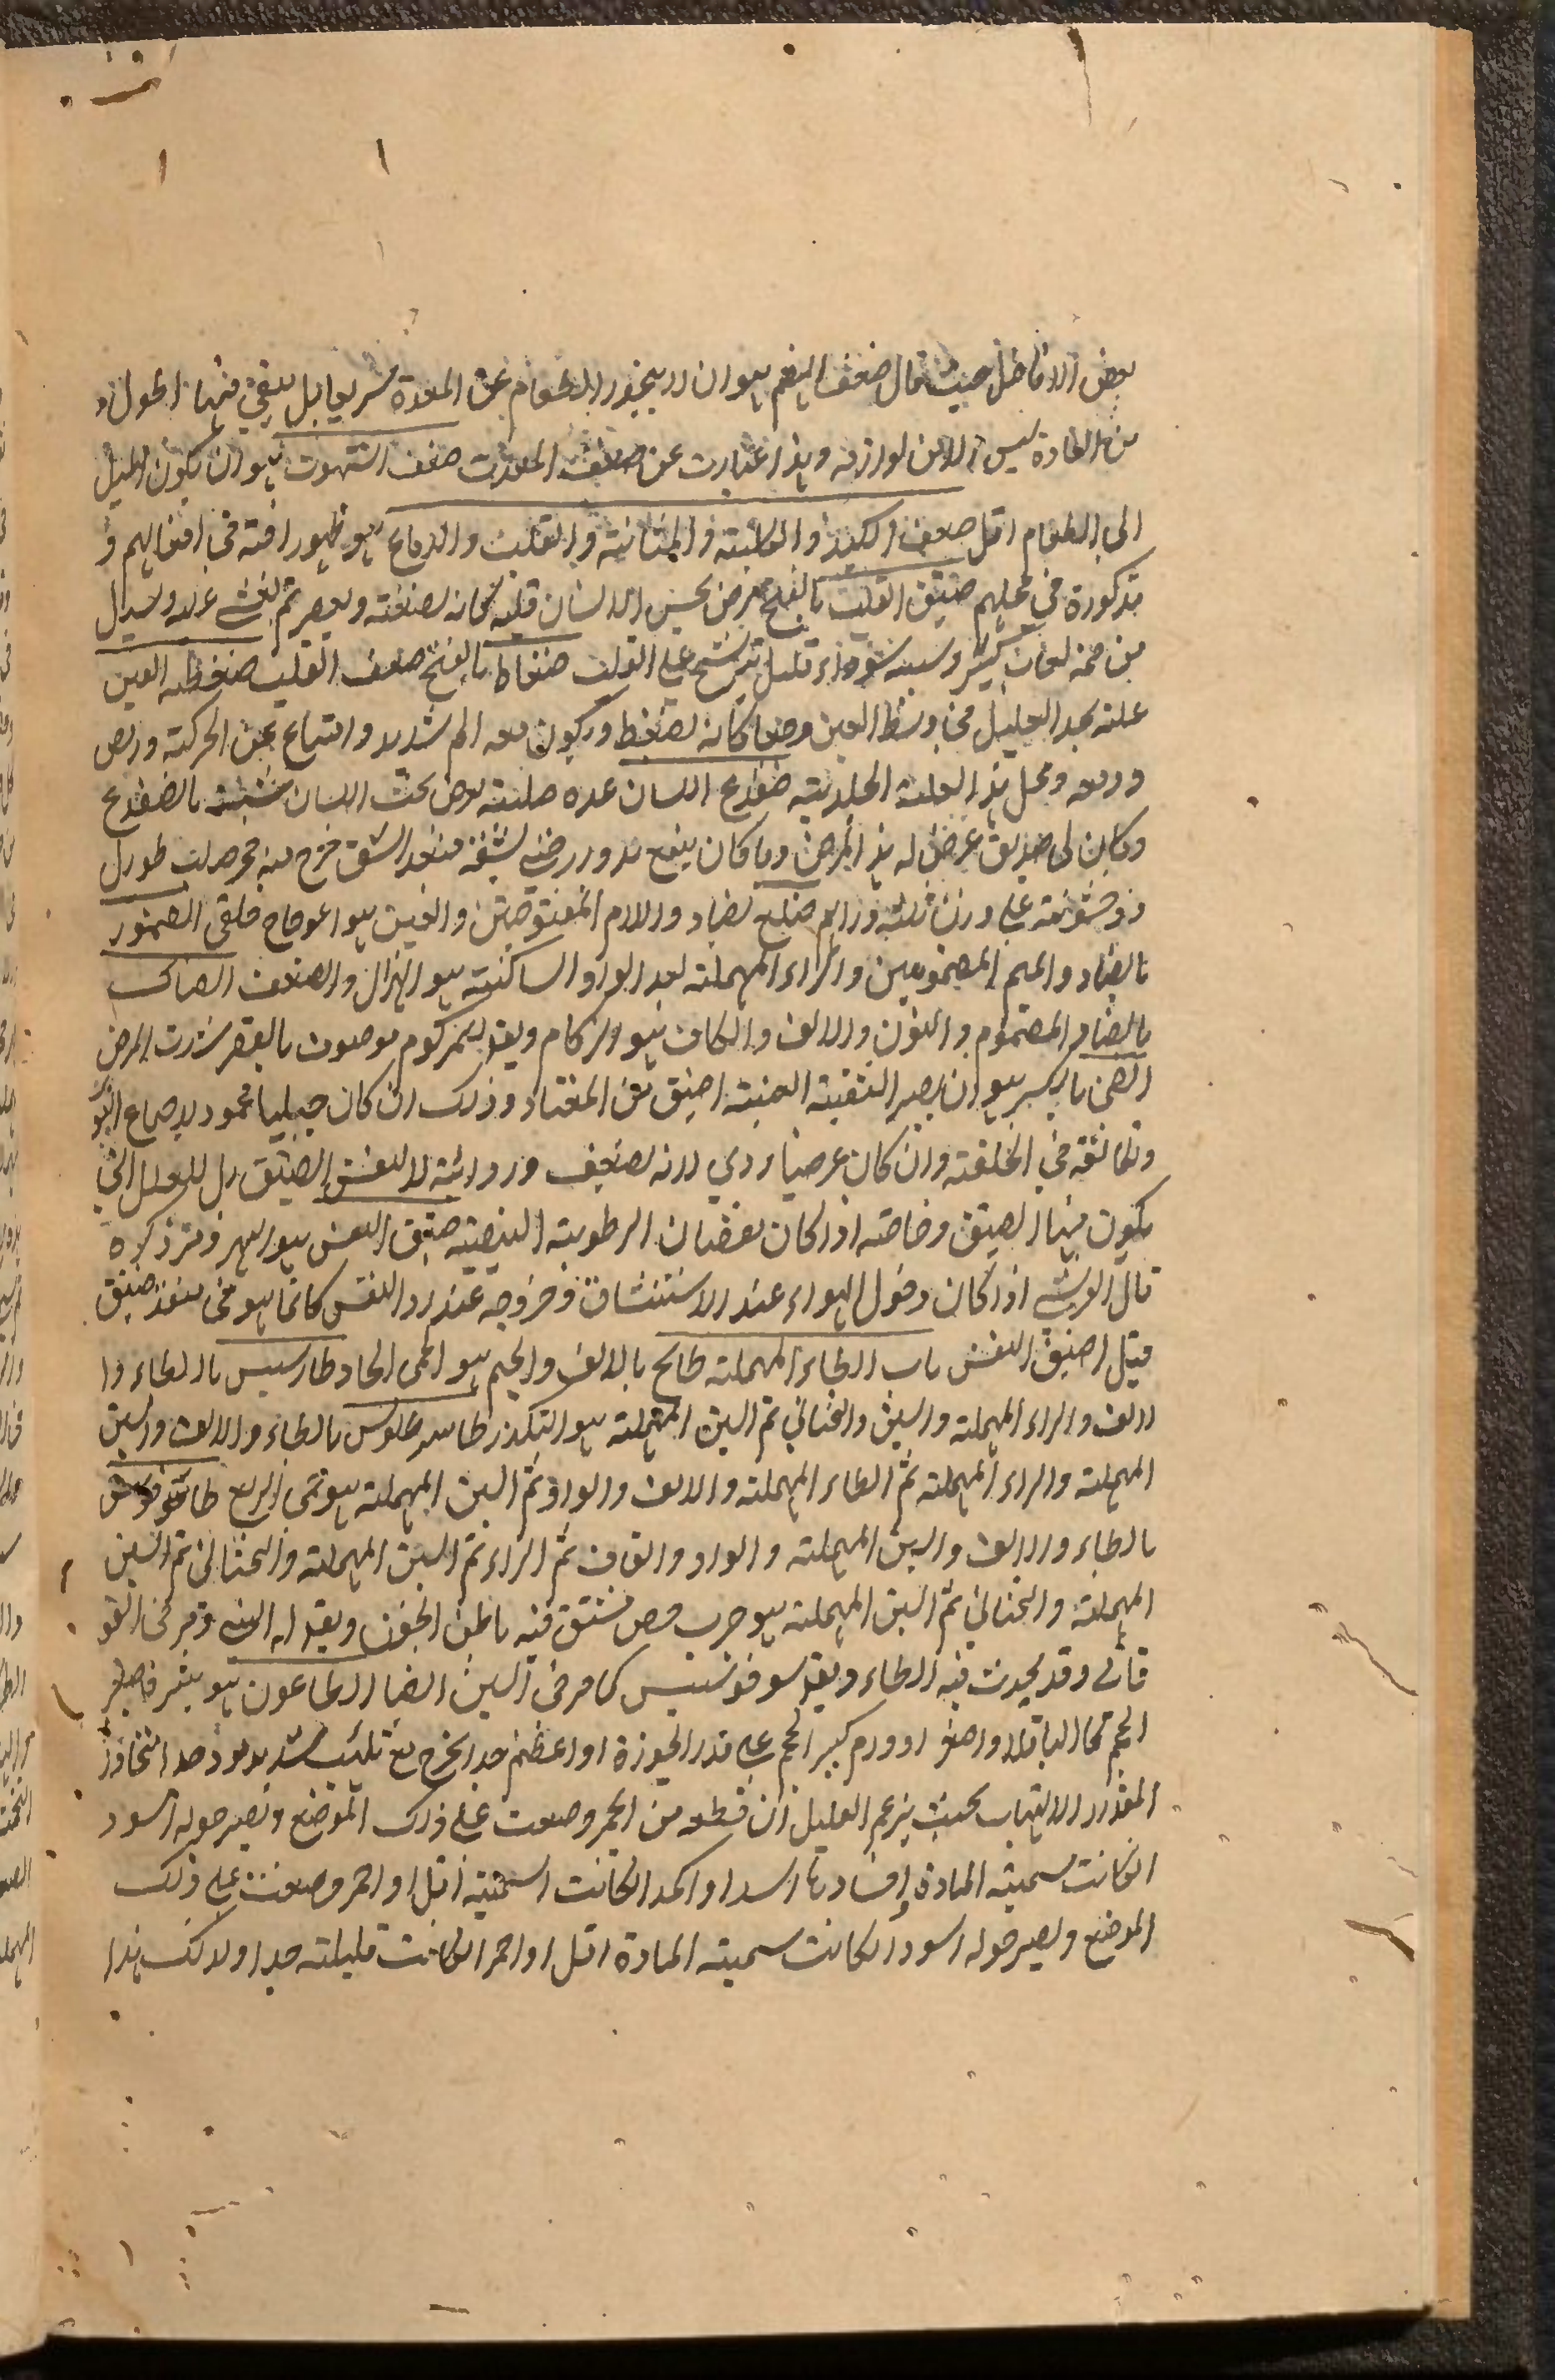 بعض الافاضل حيث قال ضعف الهضم هو ان لا ينحدر الطعام عن المعدة سريعا بل يبقى فيها اطول
من العادة ليس الا من لوازمه وهذا عبارت عن ضعف المعدت ضعف الشهوت هو ان يكون الميل
الى الطعام اقل ضعف الكبد والكليته والمثانته والقلب والدماغ هو ظهور افته في افعالهم و
مذكورة في محلهم ضيق القلب بالفتح مرض يحس الانسان قلبه كانه يضغطه ويعصر ثم يغشى عليه ويسيل
من فمه لعاب كثير وسببه سوداء قليل يترشح على القلب ضغاط بالفتح ضعف القلب ضغطه العين
علته يجد العليل في وسط العين وجعا كانه يضغط ويكون معه الم شديد وامتناع عن الحركته
ودمعه ومحل هذ العلته الجليديته ضفدع اللسان غده صلبته يعرض تحت اللسان شبيته بالضفدع
وكان لى صديق عرض له هذ المرض وما كان ينفع بدوا فبعد الشق خرج منه حجر صلب طويل
ذو خشونته على وزن ثلثه دراهم ضلع بضاد واللام المفتوحتين والعين هو اعوجاج خلقى الضمور
بالضاد والميم المضمومين والراء المهملته بعد الواو الساكنته هو الهزال والضعف الضناك
بالضاد المضموم والنون والالف والكاف هو الزكام ويقو لمزكوم موصوف بالقصر شدت المرض
الضيق بالكسر هو ان يصير الثقبته العنبيته اضيق من المعتاد وذلك ان كان جبليا محمود لاجماع النور
وتلاثقه في الخلقته وان كان عرضيا ردي لانه يضعف وردائته لا لنفس الضيق بل للعلل التي
يكون منها الضيق وخاصته اذا كان نقصان الرطوبته البيضيته ضيق النفس هو البهر ومر ذكره
قال القرشى اذا كان دخول الهواء عند الاستنشاق وخروجه عند رد النفس كانما هو في منفذ ضيق
قيل ضيق النفس باب الطاء المهملته طابخ بالالف والجيم هو الحمى الحاد طارسيس بالطاء وا
لالف والراء المهملته والسين والتحتاني ثم السين المهملته هو التكدر طاسرطاوس بالطاء والالف والسين
المهملته والراء المهملته ثم الطاء المهملته والالف والواو ثم السين المهملته هو حمى الربع
بالطاء والالف والسين المهملته والواو والقاف ثم الراء ثم السين المهملته والتحتاني ثم السين
المهملته والتحتاني ثم السين المهملته هو جرب مشقق فيه باطن الجفون ويقو له التينى ومر في التو
قاني وقد يحدث فيه الطاء ويقو سوفوسيس كما مر في السين ايضا الطاعون هو بثر صغير
الحجم كما الباقلا واصغر او ورم كبير الحجم على قدر الجوزة او اعظم جدا يخرج مع تلهب شديد جدا متجاوز
المقدار الالتهاب بحيث يزعم العليل ان قطعه من الجمر وضعت على ذلك الموضع ويصير حوله اسود
انكانت سميته المادة وافسادها اسد او اكمد انكانت السميته اقل او احمر وضعت على ذلك
الموضع ويصير حوله اسود انكانت سميته المادة اقل او احمر انكانت قليلته جدا ولذلك هذا